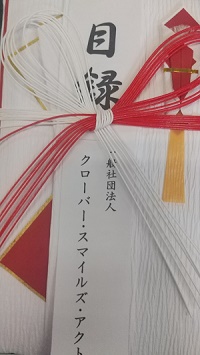 目録
一般社団法人
クローバー・スマイルズ・アクト